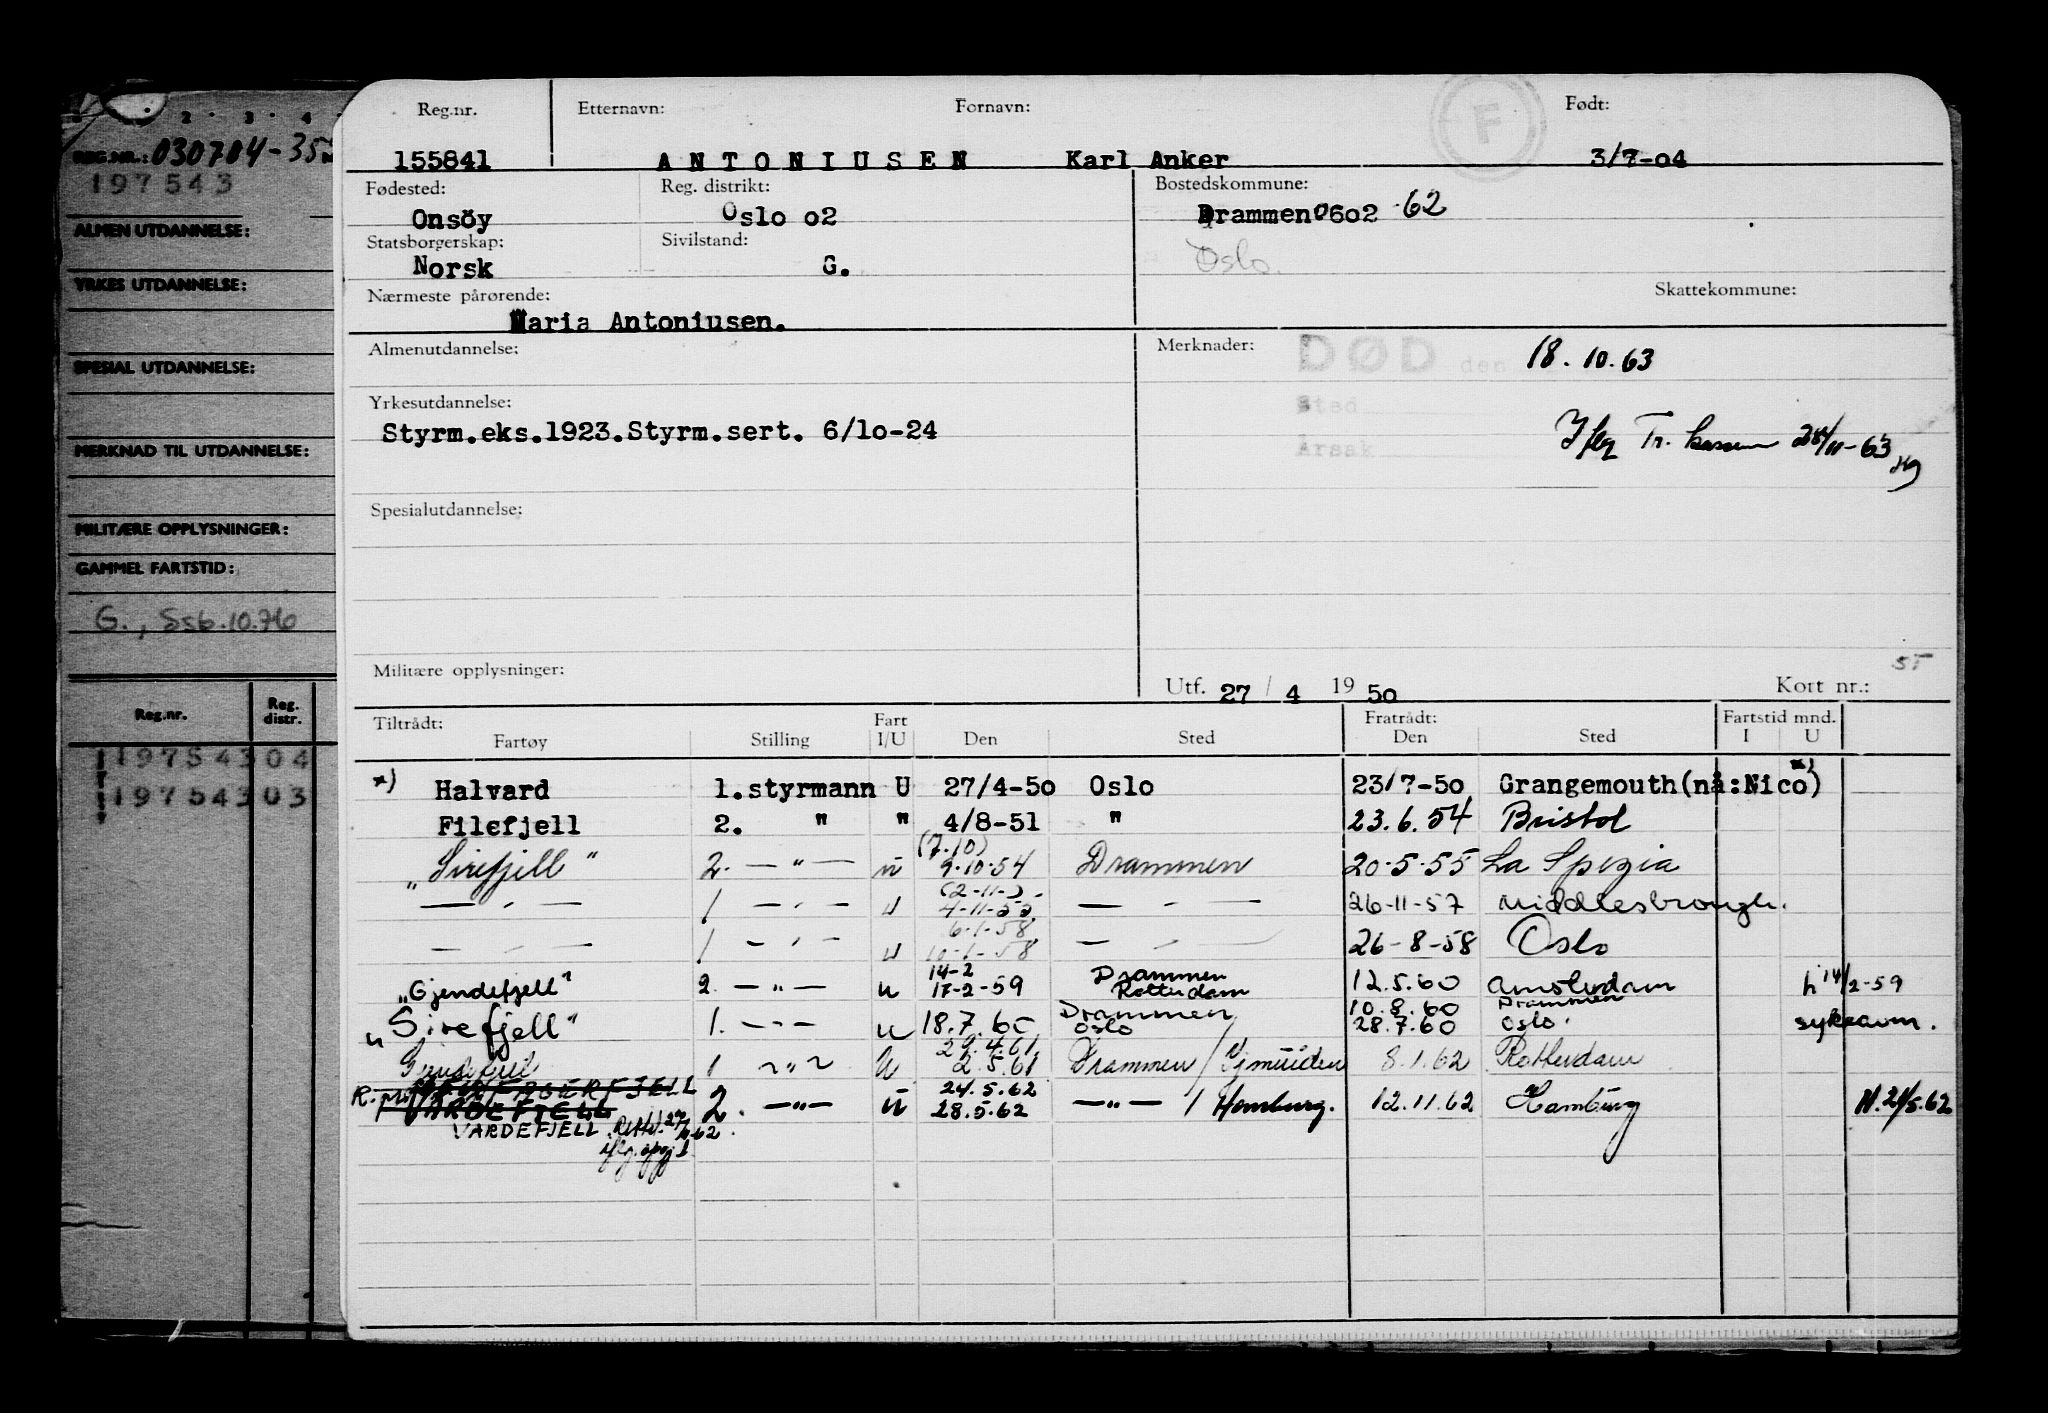 2 · 3 · 4
REG.NR.: 030704-35
197543
ALMEN UTDANNELSE:
YRKES UTDANNELSE:
SPESIAL UTDANNELSE:
MERKNAD TIL UTDANNELSE:
MILITÆRE OPPLYSNINGER:
GAMMEL FARTSTID:
G., Ssb.10.76
Reg.nr. Reg. distr.
197543 04
197543 03
Reg.nr. Etternavn: Fornavn: F Født:
155841 ANTONIUSEN Karl Anker 3/7-04
Fødested: Reg. distrikt: Bostedskommune:
Onsöy Oslo o2 Drammen 0602 62
Statsborgerskap: Sivilstand: Oslo.
Norsk G.
Nærmeste pårørende: Skattekommune:
Maria Antoniusen.
Almenutdannelse: Merknader: DØD den 18.10.63
Sted
Yrkesutdannelse:
Styrm.eks.1923.Styrm.sert. 6/10-24 Årsak Iflg Tr. 28/11-63
Spesialutdannelse:
ST
Militære opplysninger: Utf. 27 / 4 19 50 Kort nr.:
Tiltrådt: Fart Fratrådt: Fartstid mnd.
Fartøy Stilling I/U Den Sted Den Sted I U
*) Halvard 1.styrmann U 27/4-50 Oslo 23/7-50 Grangemouth (nå:Nico) *)
Filefjell 2. " " 4/8-51 " 23.6.54 Bristol
(7.10)
"Sirefjell" 2. — " — u 9.10.54 Drammen 20.5.55 La Spezia
(2-11-)
— " — 1 — " — u 4-11-55 — " — 26-11-57 Middlesbrough.
6-1-58
— " — 1 — " — u 10-1-58 — " — 26-8-58 Oslo
14-2 Drammen
"Gjendefjell" 2. — " — u 17-2-59 Rotterdam 12.5.60 Amsterdam h 14/2-59
Drammen 10.8.60 Drammen
"Sirefjell" 1. — " — u 18.7.60 Oslo 28.7.60 Oslo. sykeavm.
29.4.61
1 — " — u 2.5.61 Drammen / Ijmuiden 8.1.62 Rotterdam
24.5.62
VARDEFJELL 2. — " — u 28.5.62 — " — / Hamburg. 12.11.62 Hamburg M.24/5.62
VARDEFJELL Rettet
iflg. oppg.